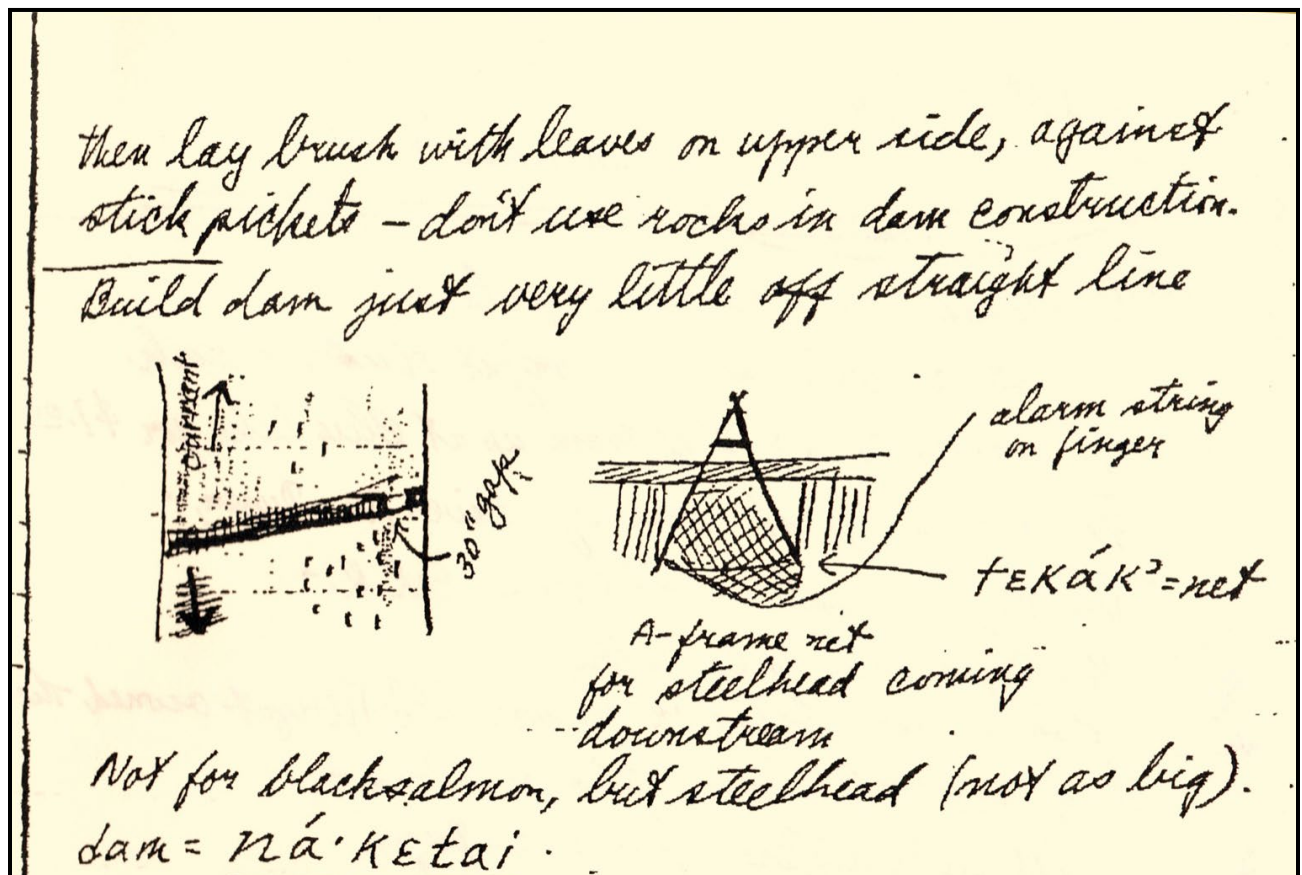 then lay brush with leaves on upper side, against
stick pickets – don't use rocks in dam construction.
Build dam just very little off straight line
current
30" gap
alarm string
on finger
tɛKáK²=net
A-frame net
for steelhead coming
downstream
Not for blacksalmon, but steelhead (not as big).
dam = ná·Kɛtai